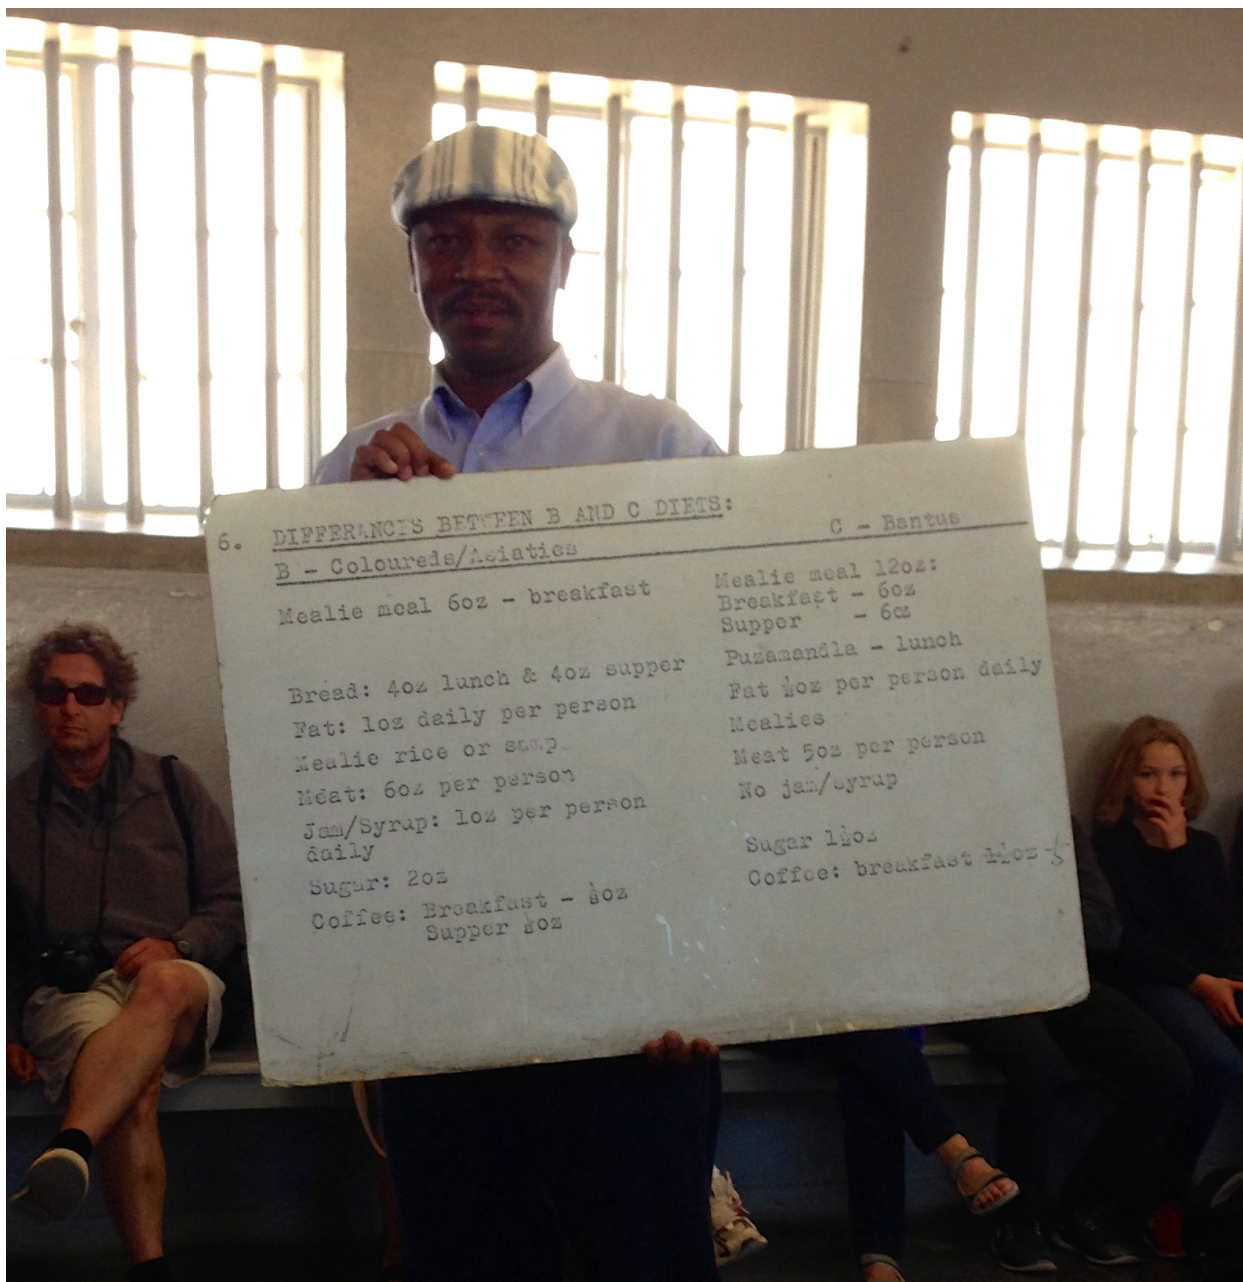 6. DIFFERANCES BETWEEN B AND C DIETS:
B - Coloureds/Asiatics
Mealie meal 6oz - breakfast
Bread: 4oz lunch & 4oz supper
Fat: 1oz daily per person
Mealie rice or samp
Meat: 6oz per person
Jam/Syrup: 1oz per person
daily
Sugar: 2oz
Coffee: Breakfast - ½oz
Supper ½oz
C - Bantus
Mealie meal 12oz:
Breakfast - 6oz
Supper - 6oz
Puzamandla - lunch
Fat ½oz per person daily
Mealies
Meat 5oz per person
No jam/syrup
Sugar 1½oz
Coffee: breakfast 1½oz